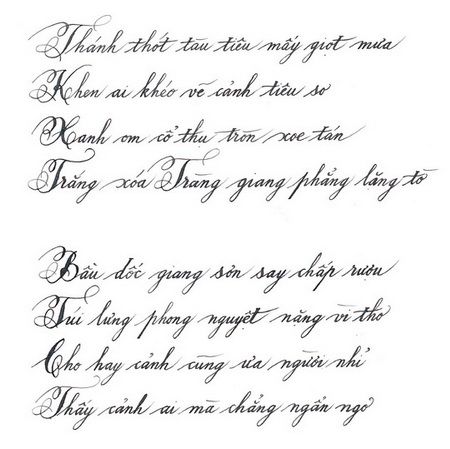 Thánh thót tàu tiêu mấy giọt mưa
Khen ai khéo vẽ cảnh tiêu sơ
Xanh om cổ thụ tròn xoe tán
Trắng xóa Tràng giang phẳng lặng tờ
Bầu dốc giang sơn say chấp rượu
Túi lưng phong nguyệt nặng vì thơ
Cho hay cảnh cũng ưa người nhỉ
Thấy cảnh ai mà chẳng ngẩn ngơ